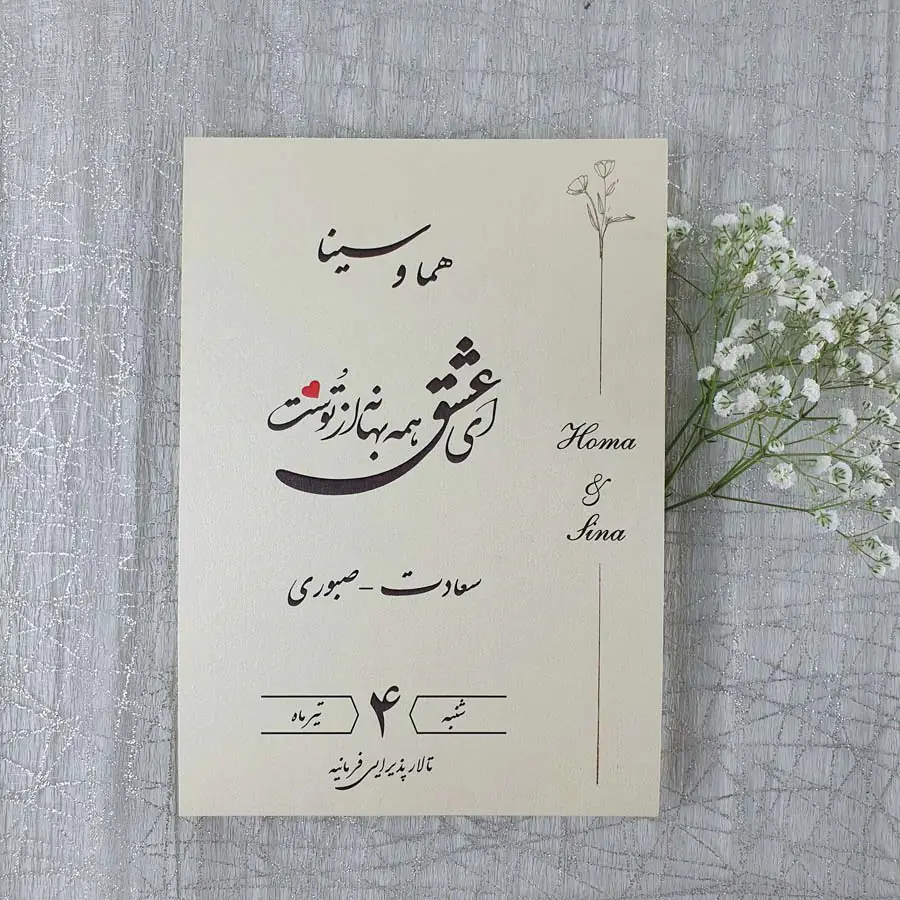 هما و سینا
ای عشق همه بهانه از توُست
سعادت - صبوری
شنبه ۴ تیر ماه
تالار پذیرایی فرمانیه
Homa
&
Sina